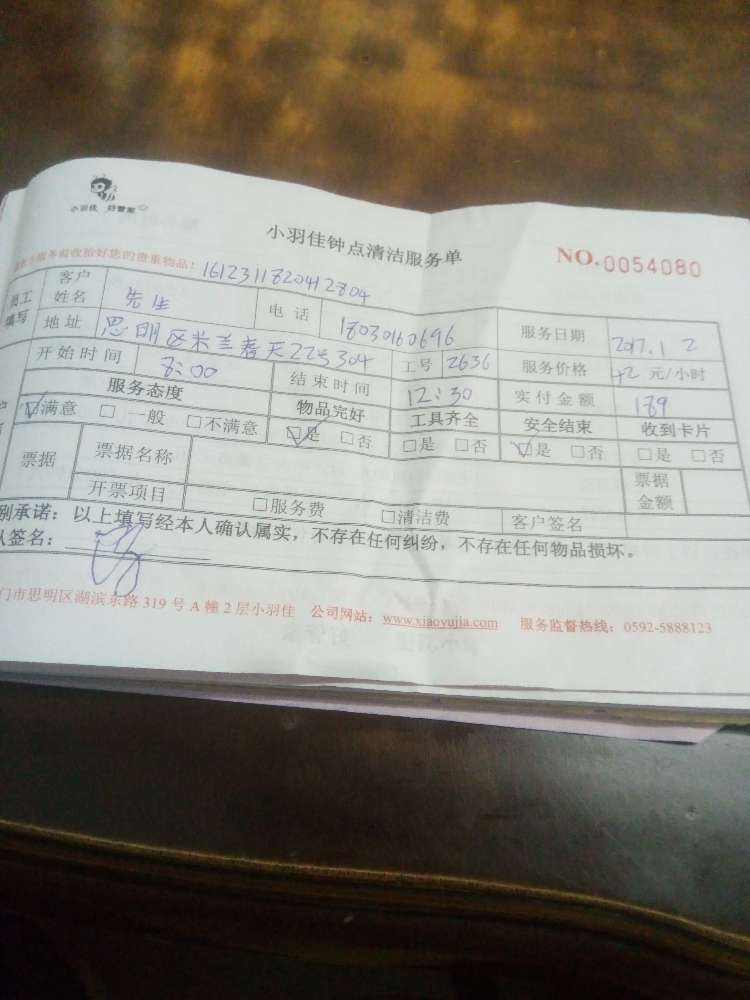 小羽佳 好管家
小羽佳钟点清洁服务单
NO.0054080
服务前收拾好您的贵重物品！ 1612311820412804
员工填写 客户姓名 先生 电话 18030160696 服务日期 2017.1 2
地址 思明区米兰春天22号304 工号 2636 服务价格 42 元/小时
开始时间 8:00 结束时间 12:30 实付金额 189
服务态度 物品完好 工具齐全 安全结束 收到卡片
☑满意 □一般 □不满意 ☑是 □否 □是 □否 ☑是 □否 □是 □否
票据 票据名称 票据金额
开票项目 □服务费 □清洁费 客户签名
别承诺：以上填写经本人确认属实，不存在任何纠纷，不存在任何物品损坏。
签名：
门市思明区湖滨东路 319 号 A 幢 2 层小羽佳 公司网站：www.xiaoyujia.com 服务监督热线：0592-5888123